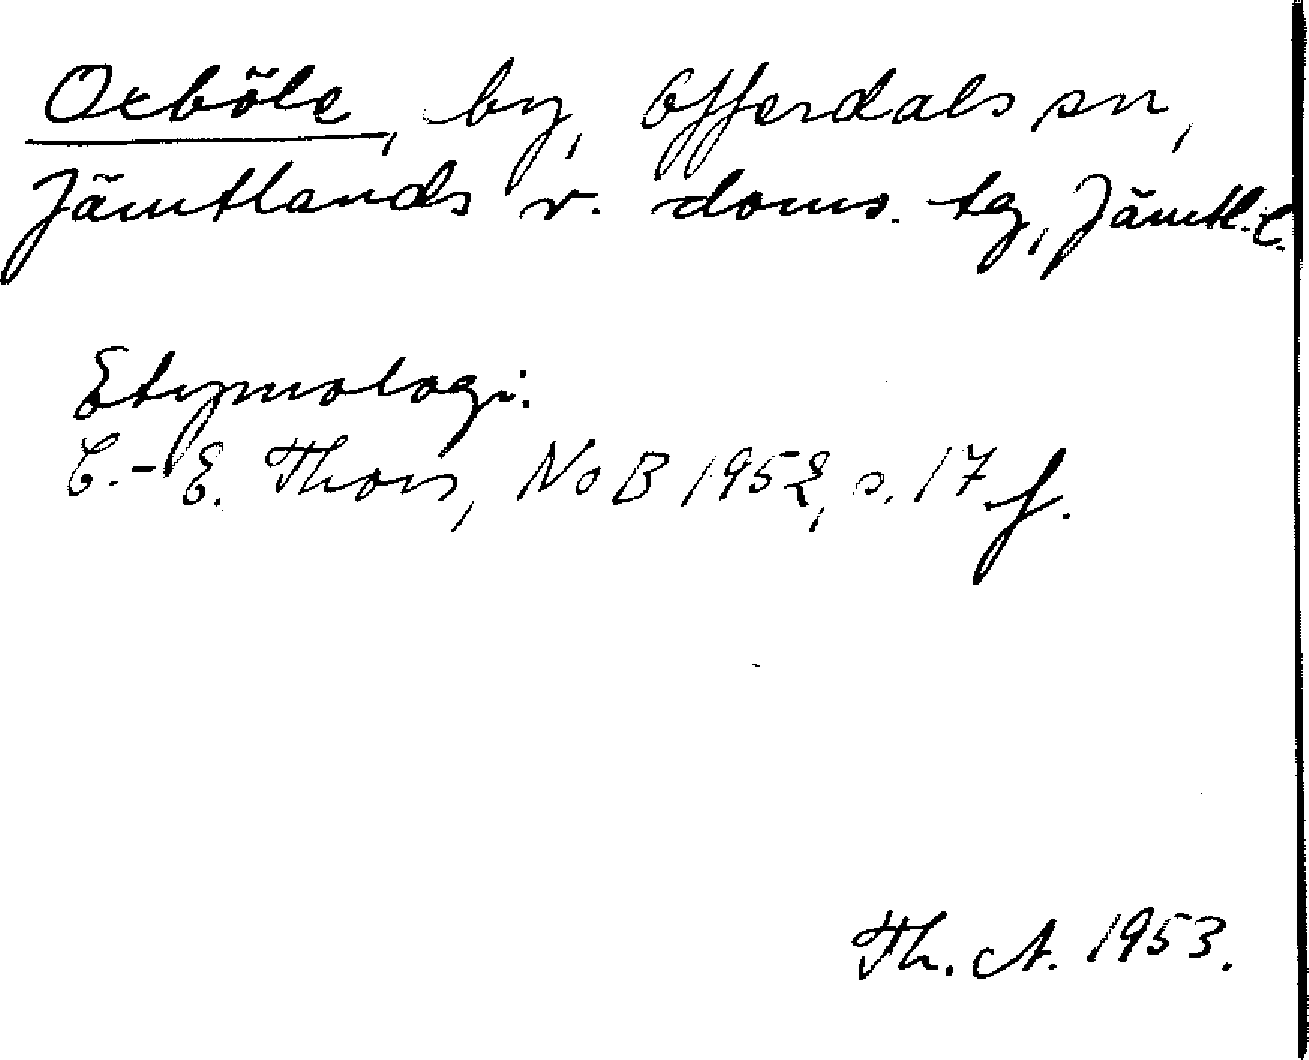 Oxböle, by, Offerdals sn,
Jämtlands v. doms. tg, Jämtl. l.
Etymologi:
C.-E. Thors, NoB 1952, s. 17 f.
Th. A. 1953.